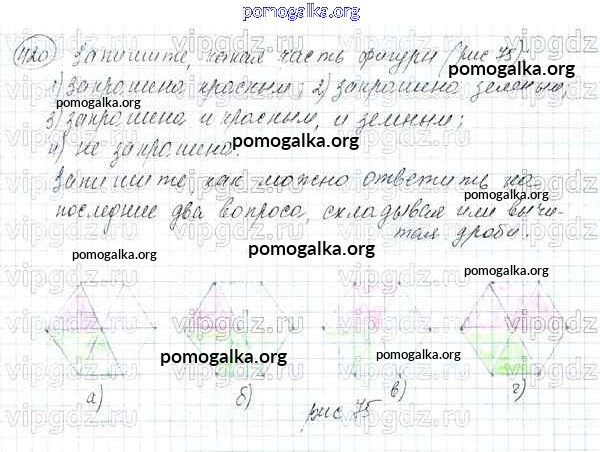 pomogalka.org
1120 Запишите, какая часть фигуры (рис 75)
pomogalka.org
1) закрашена красным; 2) закрашена зеленым;
3) закрашена и красным, и зеленым;
pomogalka.org
4) не закрашена.
Запишите, как можно ответить на
pomogalka.org
последние два вопроса, складывая или вычи-
тая дроби.
pomogalka.org
pomogalka.org
vipgdz.ru vipgdz.ru vipgdz.ru
pomogalka.org
pomogalka.org
pomogalka.org
а) б) в) г)
рис 75